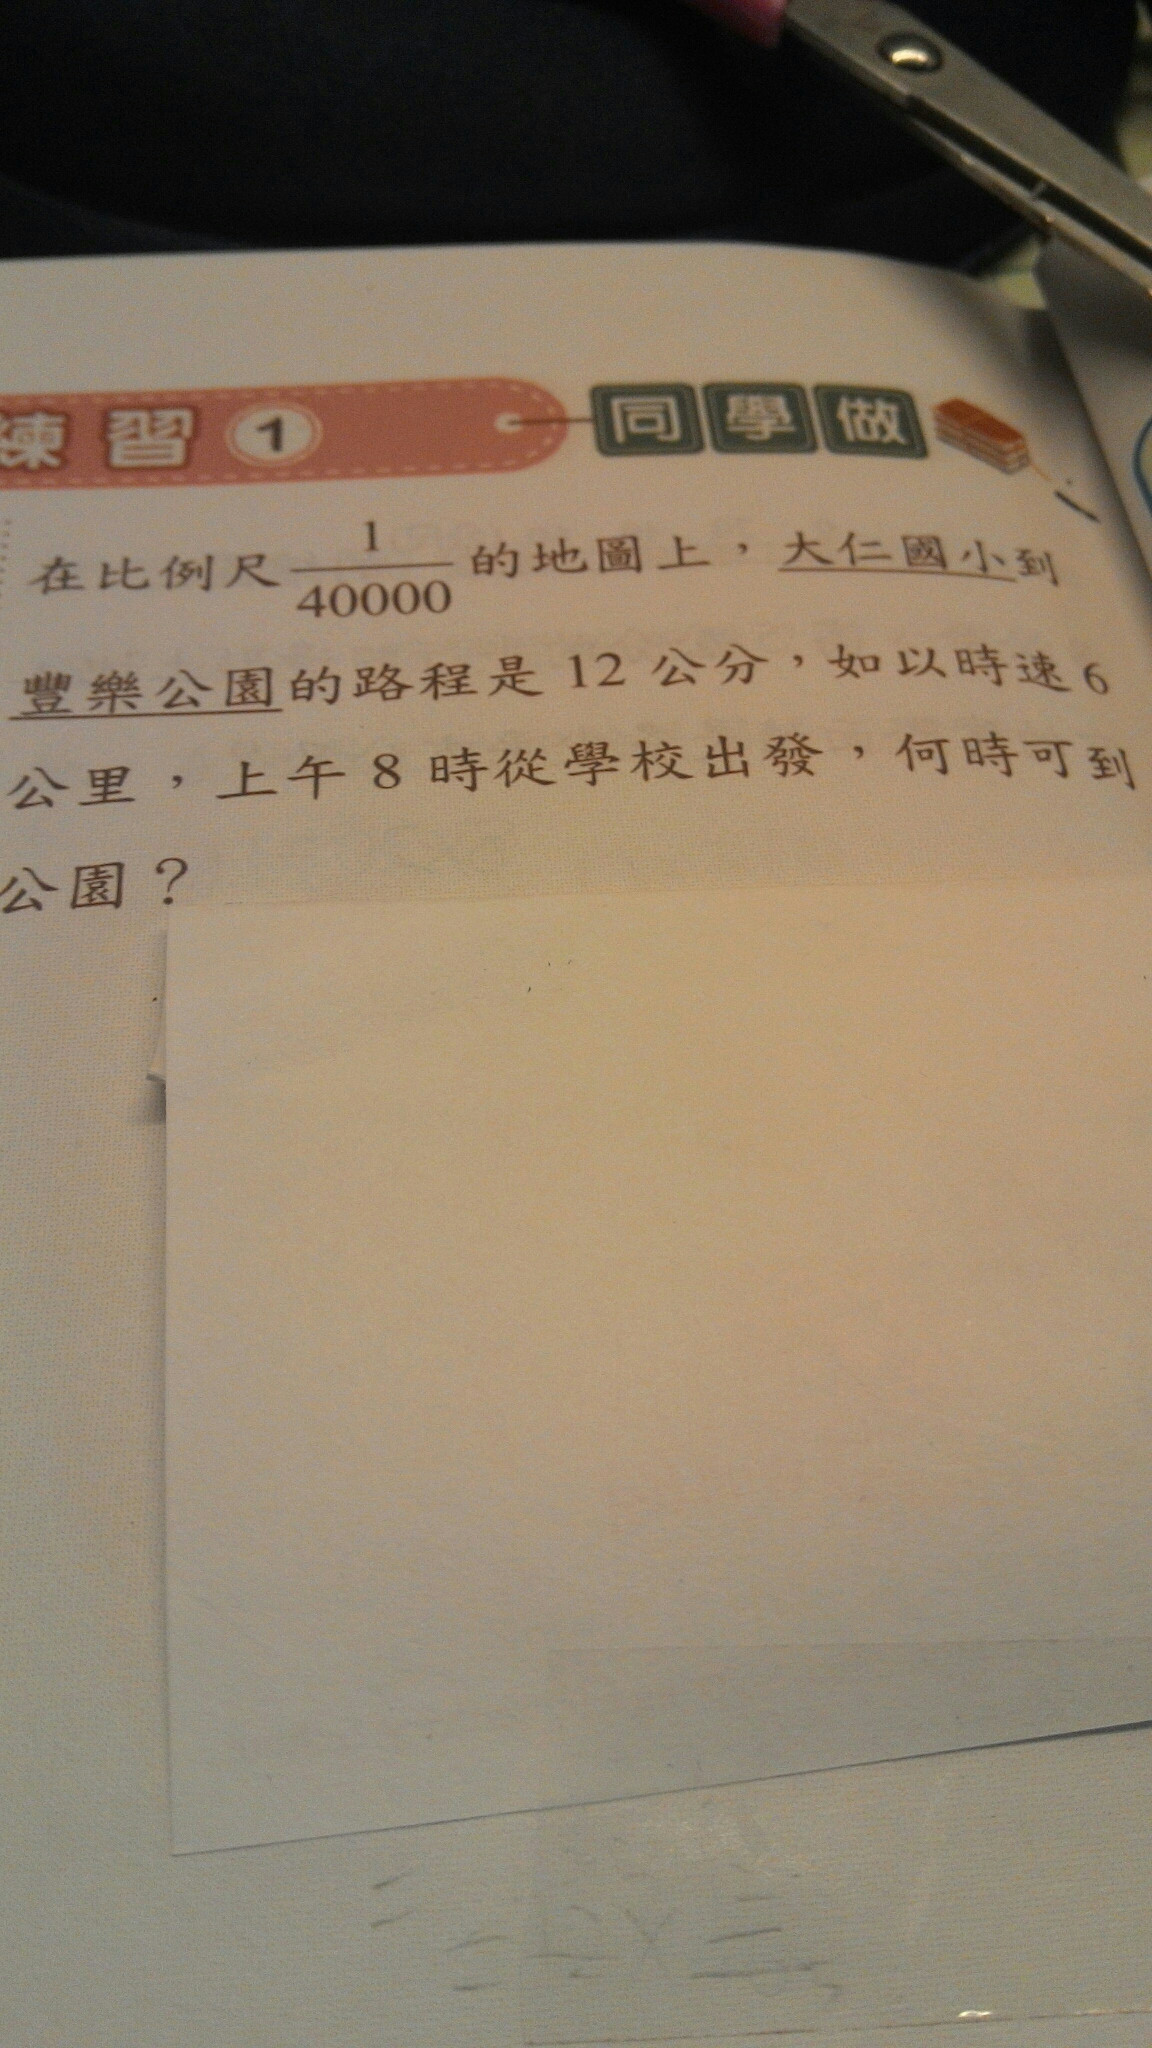 練習 1 同學做
在比例尺 1/40000 的地圖上，大仁國小到
豐樂公園的路程是 12 公分，如以時速 6
公里，上午 8 時從學校出發，何時可到
公園？